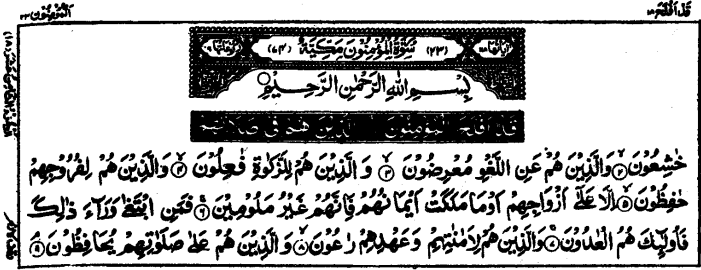 قد افلح ۱۸
المؤمنون ۲۳
(۲۳) سُوْرَةُ الْمُؤْمِنُوْنَ مَكِّيَّةٌ (۷۴)
بِسْمِ اللهِ الرَّحْمٰنِ الرَّحِيْمِ
قَدْ اَفْلَحَ الْمُؤْمِنُوْنَ الَّذِيْنَ هُمْ فِيْ صَلَاتِهِمْ
خٰشِعُوْنَ ۲ وَالَّذِيْنَ هُمْ عَنِ اللَّغْوِ مُعْرِضُوْنَ ۳ وَ الَّذِيْنَ هُمْ لِلزَّكٰوةِ فٰعِلُوْنَ ۴ وَالَّذِيْنَ هُمْ لِفُرُوْجِهِمْ
حٰفِظُوْنَ ۵ اِلَّا عَلٰٓى اَزْوَاجِهِمْ اَوْ مَا مَلَكَتْ اَيْمَانُهُمْ فَاِنَّهُمْ غَيْرُ مَلُوْمِيْنَ ۶ فَمَنِ ابْتَغٰى وَرَآءَ ذٰلِكَ
فَاُولٰٓئِكَ هُمُ الْعٰدُوْنَ ۷ وَالَّذِيْنَ هُمْ لِاَمٰنٰتِهِمْ وَعَهْدِهِمْ رٰعُوْنَ ۸ وَالَّذِيْنَ هُمْ عَلٰى صَلَوٰتِهِمْ يُحَافِظُوْنَ ۹